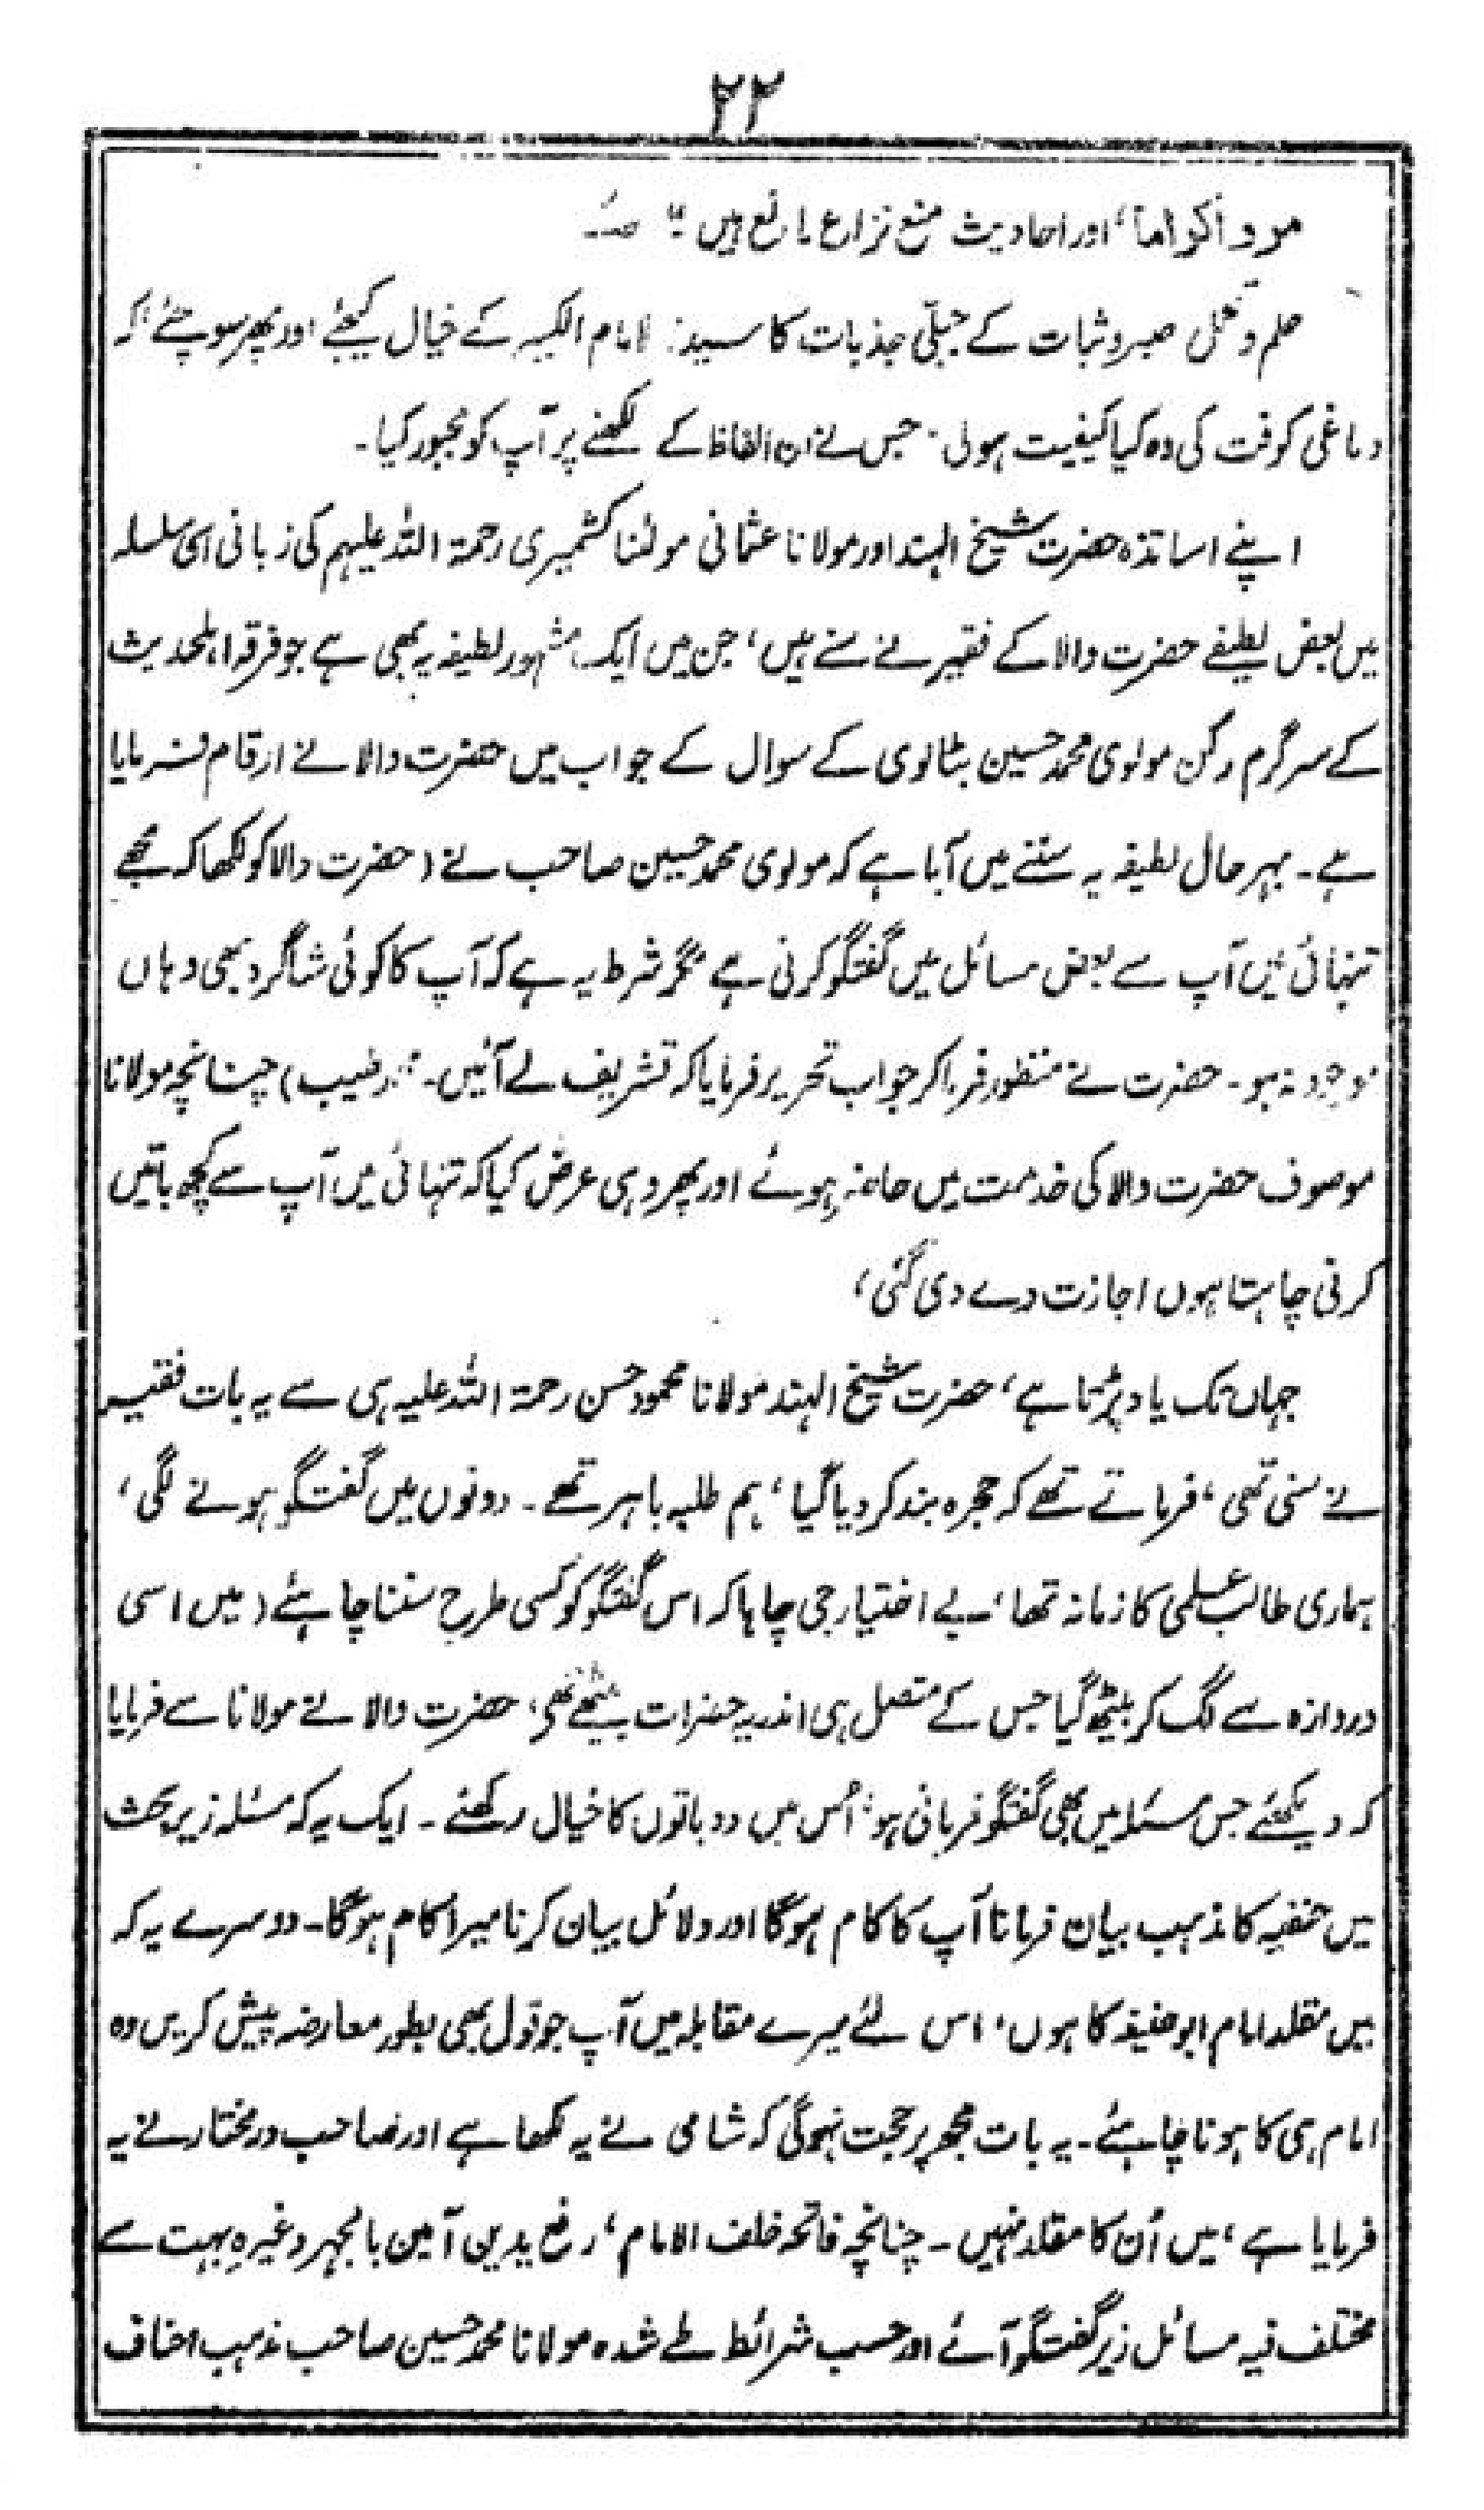 ۲۲
مروا کراما، اور احادیث منع نزاع مانع ہیں" صـ
حلم و تحمل صبر و ثبات کے جبلّی جذبات کا سیدنا الامام الکبیر کے خیال کیجئے اور پھر سوچئے، کہ
دماغی کوفت کی وہ کیا کیفیت ہوئی۔ جس نے ان الفاظ کے لکھنے پر آپ کو مجبور کیا۔
اپنے اساتذہ حضرت شیخ الہند اور مولانا عثمانی مولٰنا کشمیری رحمۃ اللہ علیہم کی زبانی اسی سلسلہ
میں بعض لطیفے حضرت والا کے فقیر نے سنے ہیں، جن میں ایک مشہور لطیفہ یہ بھی ہے جو فرقہ اہلحدیث
کے سرگرم رکن مولوی محمد حسین بٹالوی کے سوال کے جواب میں حضرت والا نے ارقام فرمایا
ہے۔ بہر حال لطیفہ یہ سننے میں آیا ہے کہ مولوی محمد حسین صاحب نے (حضرت والا کو لکھا کہ مجھے
تنہائی میں آپ سے بعض مسائل میں گفتگو کرنی ہے مگر شرط یہ ہے کہ آپ کا کوئی شاگرد بھی وہاں
موجود نہ ہو۔ حضرت نے منظور فرما کر جواب تحریر فرمایا کہ تشریف لے آئیں۔ محمد طیب) چنانچہ مولانا
موصوف حضرت والا کی خدمت میں حاضر ہوئے اور پھر وہی عرض کیا کہ تنہائی میں آپ سے کچھ باتیں
کرنی چاہتا ہوں اجازت دے دی گئی،
جہاں تک یاد پڑتا ہے، حضرت شیخ الہند مولانا محمود حسن رحمۃ اللہ علیہ ہی سے یہ بات فقیر
نے سنی تھی، فرماتے تھے کہ حجرہ بند کر دیا گیا، ہم طلبہ باہر تھے۔ دونوں میں گفتگو ہونے لگی،
ہماری طالب علمی کا زمانہ تھا، بے اختیار جی چاہا کہ اس گفتگو کو کسی طرح سننا چاہئے (میں اسی
دروازہ سے لگ کر بیٹھ گیا جس کے متصل ہی اندر یہ حضرات بیٹھے تھے، حضرت والا نے مولانا سے فرمایا
کہ دیکھئے جس مسئلہ میں بھی گفتگو فرمانی ہو، اُس میں دو باتوں کا خیال رکھئے۔ ایک یہ کہ مسئلہ زیر بحث
میں حنفیہ کا مذہب بیان فرمانا آپ کا کام ہوگا اور دلائل بیان کرنا میرا کام ہوگا۔ دوسرے یہ کہ
میں مقلد امام ابو حنیفہ کا ہوں، اس لئے میرے مقابلہ میں آپ جو قول بھی بطور معارضہ پیش کریں وہ
امام ہی کا ہونا چاہئے۔ یہ بات مجھ پر حجت نہو گی کہ شامی نے یہ لکھا ہے اور صاحب درمختار نے یہ
فرمایا ہے، میں اُن کا مقلد نہیں۔ چنانچہ فاتحہ خلف الامام، رفع یدین آمین بالجہر وغیرہ بہت سے
مختلف فیہ مسائل زیر گفتگو آئے اور حسب شرائط طے شدہ مولانا محمد حسین صاحب مذہب احناف